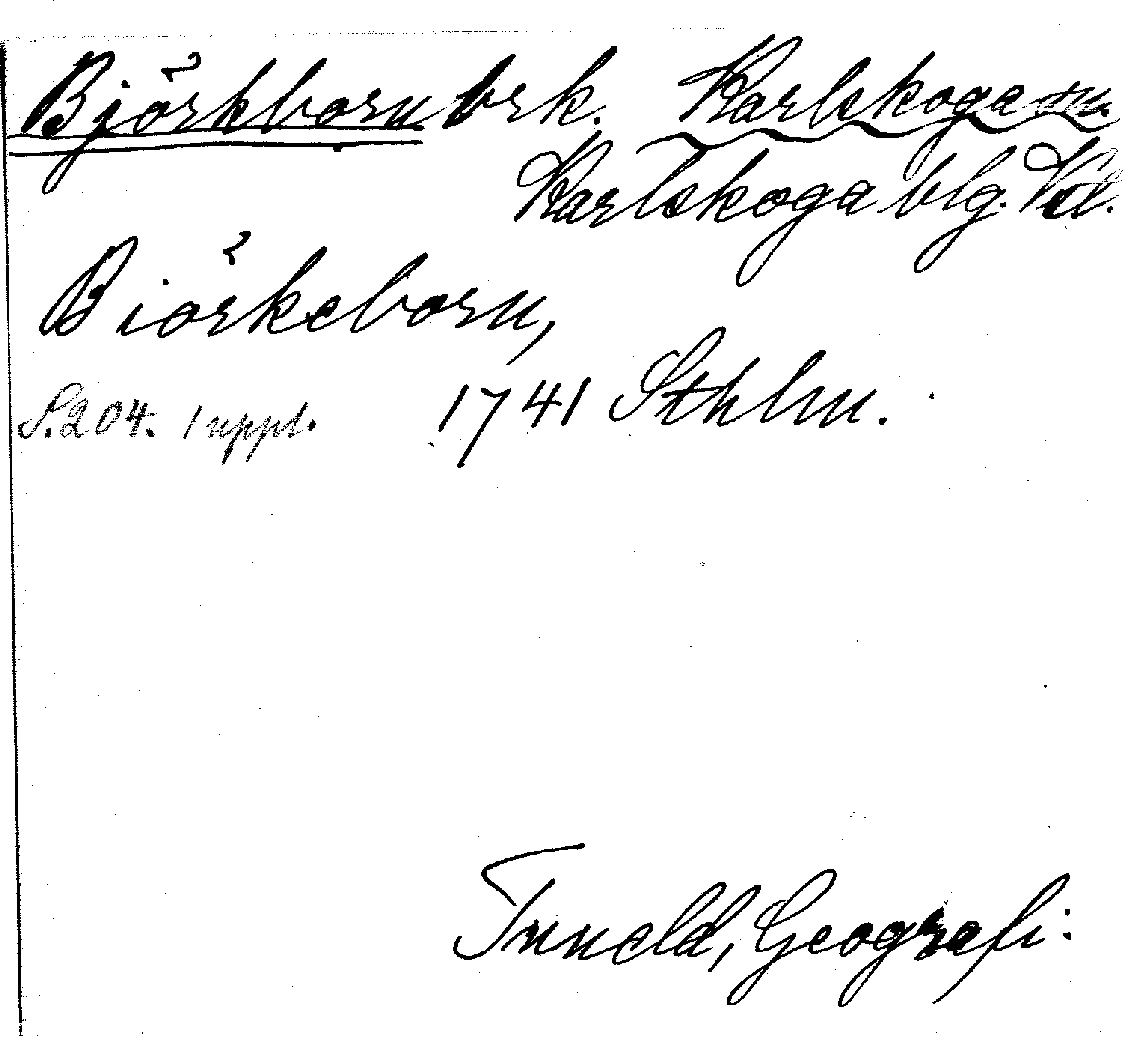 Björkborn brk. Karlskoga sn
Karlskoga blg. Vd.
Biörkeborn,
S. 204. 1 uppl. 1741 Sthlm.
Tuneld, Geografi.